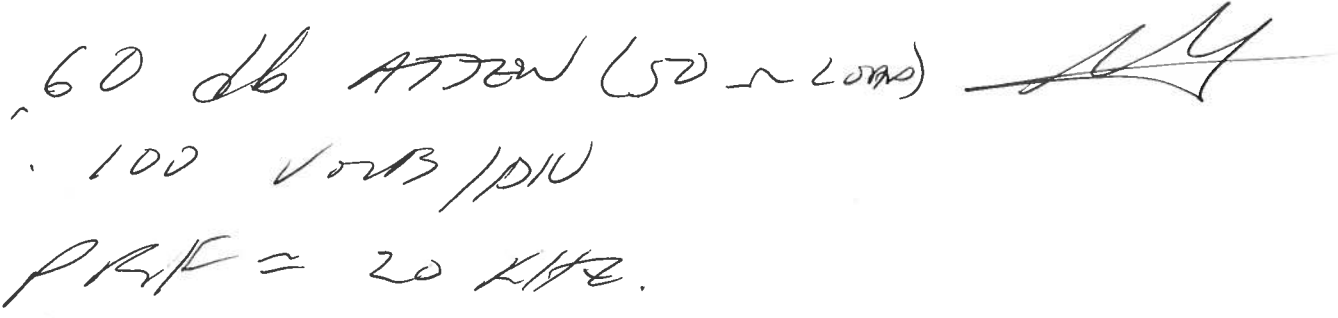 . 60 db ATTEN (50 Ω LOAD)
. 100 VOLTS/DIV
PRF = 20 KHZ.